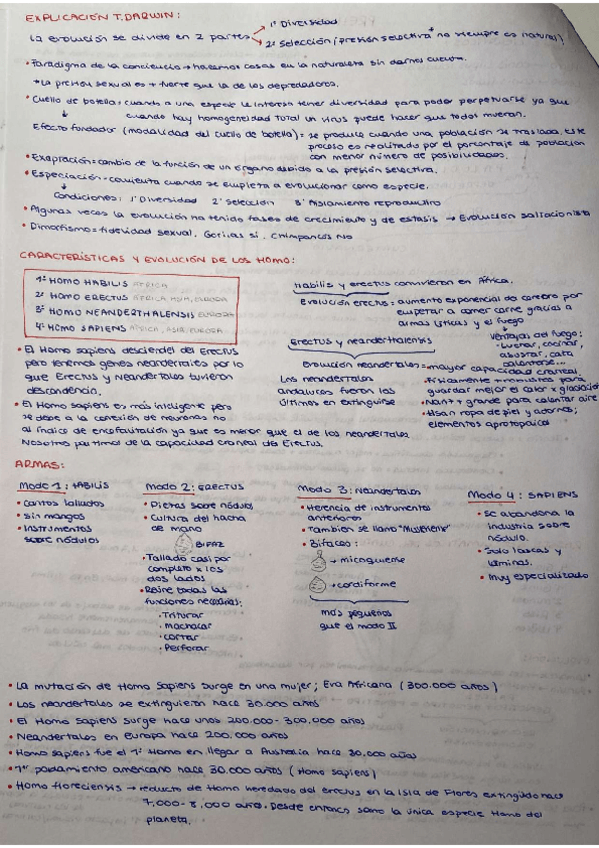 EXPLICACIÓN T. DARWIN:
La evolución se divide en 2 partes
1º Diversidad
2º Selección (presión selectiva* no siempre es natural)
• Paradigma de la conciencia → hacemos cosas en la naturaleza sin darnos cuenta.
*La presión sexual es + fuerte que la de los depredadores.
• Cuello de botella = cuando a una especie le interesa tener diversidad para poder perpetuarse ya que
cuando hay homogeneidad total un virus puede hacer que todos mueran.
Efecto fundador (modalidad del cuello de botella) = se produce cuando una población se traslada. Este
proceso es realizado por el porcentaje de población
con menor número de posibilidades.
• Exaptación = cambio de la función de un órgano debido a la presión selectiva.
• Especiación = comienza cuando se empieza a evolucionar como especie.
Condiciones: 1º Diversidad 2º Selección 3º Aislamiento reproductivo
• Algunas veces la evolución ha tenido fases de crecimiento y de estasis → Evolución saltacionista
• Dimorfismo = fidelidad sexual. Gorilas sí, chimpancés no
CARACTERÍSTICAS Y EVOLUCIÓN DE LOS HOMO:
1º HOMO HABILIS ÁFRICA
2º HOMO ERECTUS ÁFRICA, ASIA, EUROPA
3º HOMO NEANDERTHALENSIS EUROPA
4º HOMO SAPIENS ÁFRICA, ASIA, EUROPA
Habilis y erectus convivieron en África.
Evolución erectus = aumento exponencial de cerebro por
empezar a comer carne gracias a
armas líticas y el fuego
Ventajas del fuego:
• Luchar, cocinar,
asustar, caza
calentarse...
Erectus y neandertalensis
Evolución neandertales = mayor capacidad craneal.
• Físicamente + robustos para
guardar mejor el calor x glaciación
• Nariz + grande para calentar aire
• Usan ropa de piel y adornos;
elementos apotropaicos
Los neandertales
andaluces fueron los
últimos en extinguirse
• El Homo sapiens desciende del Erectus
pero tenemos genes neandertales por lo
que Erectus y Neandertales tuvieron
descendencia.
• El Homo sapiens es más inteligente pero
se debe a la conexión de neuronas no
al índice de encefalización ya que es menor que el de los neandertales.
Nosotros partimos de la capacidad craneal del Erectus.
ARMAS:
Modo 1: HABILIS
• Cantos tallados
• Sin mangos
• Instrumentos
sobre nódulos
Modo 2: ERECTUS
• Piezas sobre nódulos
• Cultura del hacha
de mano
BIFAZ
• Tallado casi por
completo x los
dos lados
• Reúne todas las
funciones necesarias:
• Triturar
• Machacar
• Cortar
• Perforar
Modo 3: Neandertales
• Herencia de instrumentos
anteriores
• También se llama "Musteriense"
• Bifaces:
→ micoquiense
→ cordiforme
más pequeños
que el modo II
Modo 4: SAPIENS
• Se abandona la
industria sobre
nódulo.
• Solo lascas y
láminas.
• Muy especializado
• La mutación de Homo Sapiens surge en una mujer; Eva Africana (300.000 años)
• Los neandertales se extinguieron hace 30.000 años
• El Homo Sapiens surge hace unos 200.000 - 300.000 años
• Neandertales en Europa hace 200.000 años
• Homo sapiens fue el 1º Homo en llegar a Australia hace 30.000 años
• 1er poblamiento americano hace 30.000 años (Homo sapiens)
• Homo floreciensis → reducto de Homo heredado del erectus en la Isla de Flores extinguido hace
7.000 - 8.000 años. Desde entonces somos la única especie Homo del
planeta.